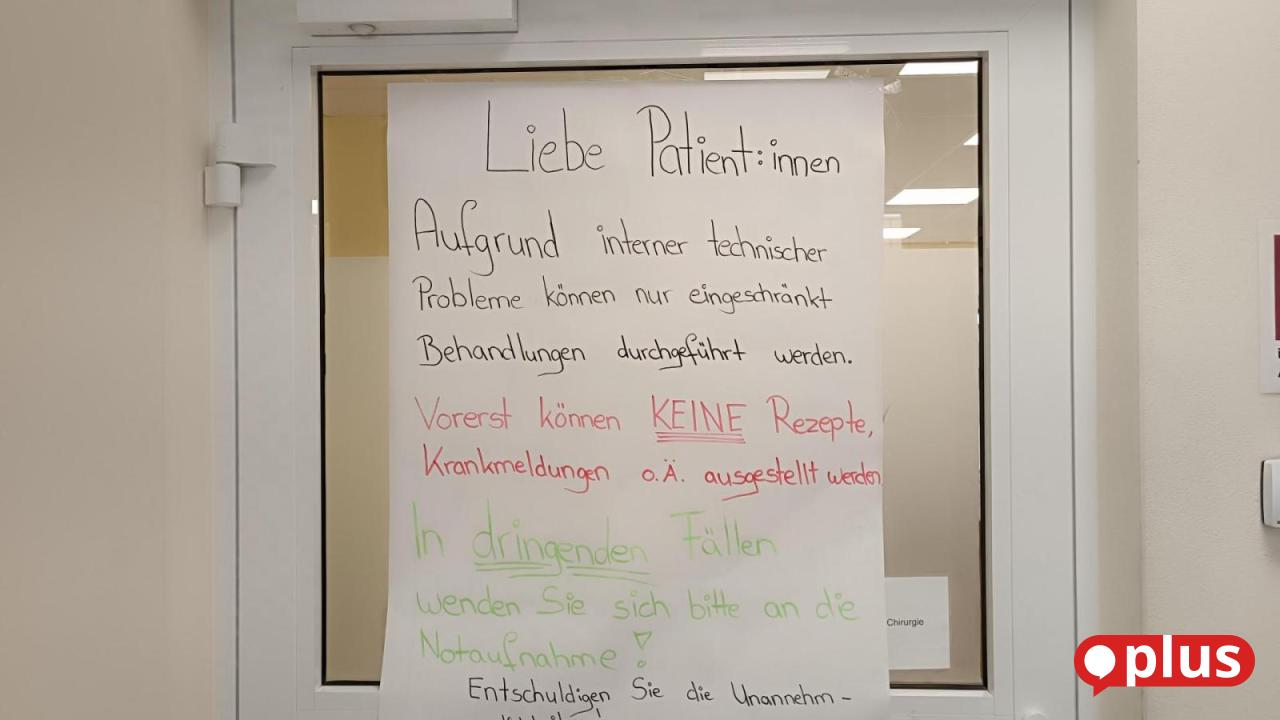 Liebe Patient:innen
Aufgrund interner technischer
Probleme können nur eingeschränkt
Behandlungen durchgeführt werden.
Vorerst können KEINE Rezepte,
Krankmeldungen o.Ä. ausgestellt werden
In dringenden Fällen
wenden Sie sich bitte an die
Notaufnahme!
Entschuldigen Sie die Unannehm-
Chirurgie
plus